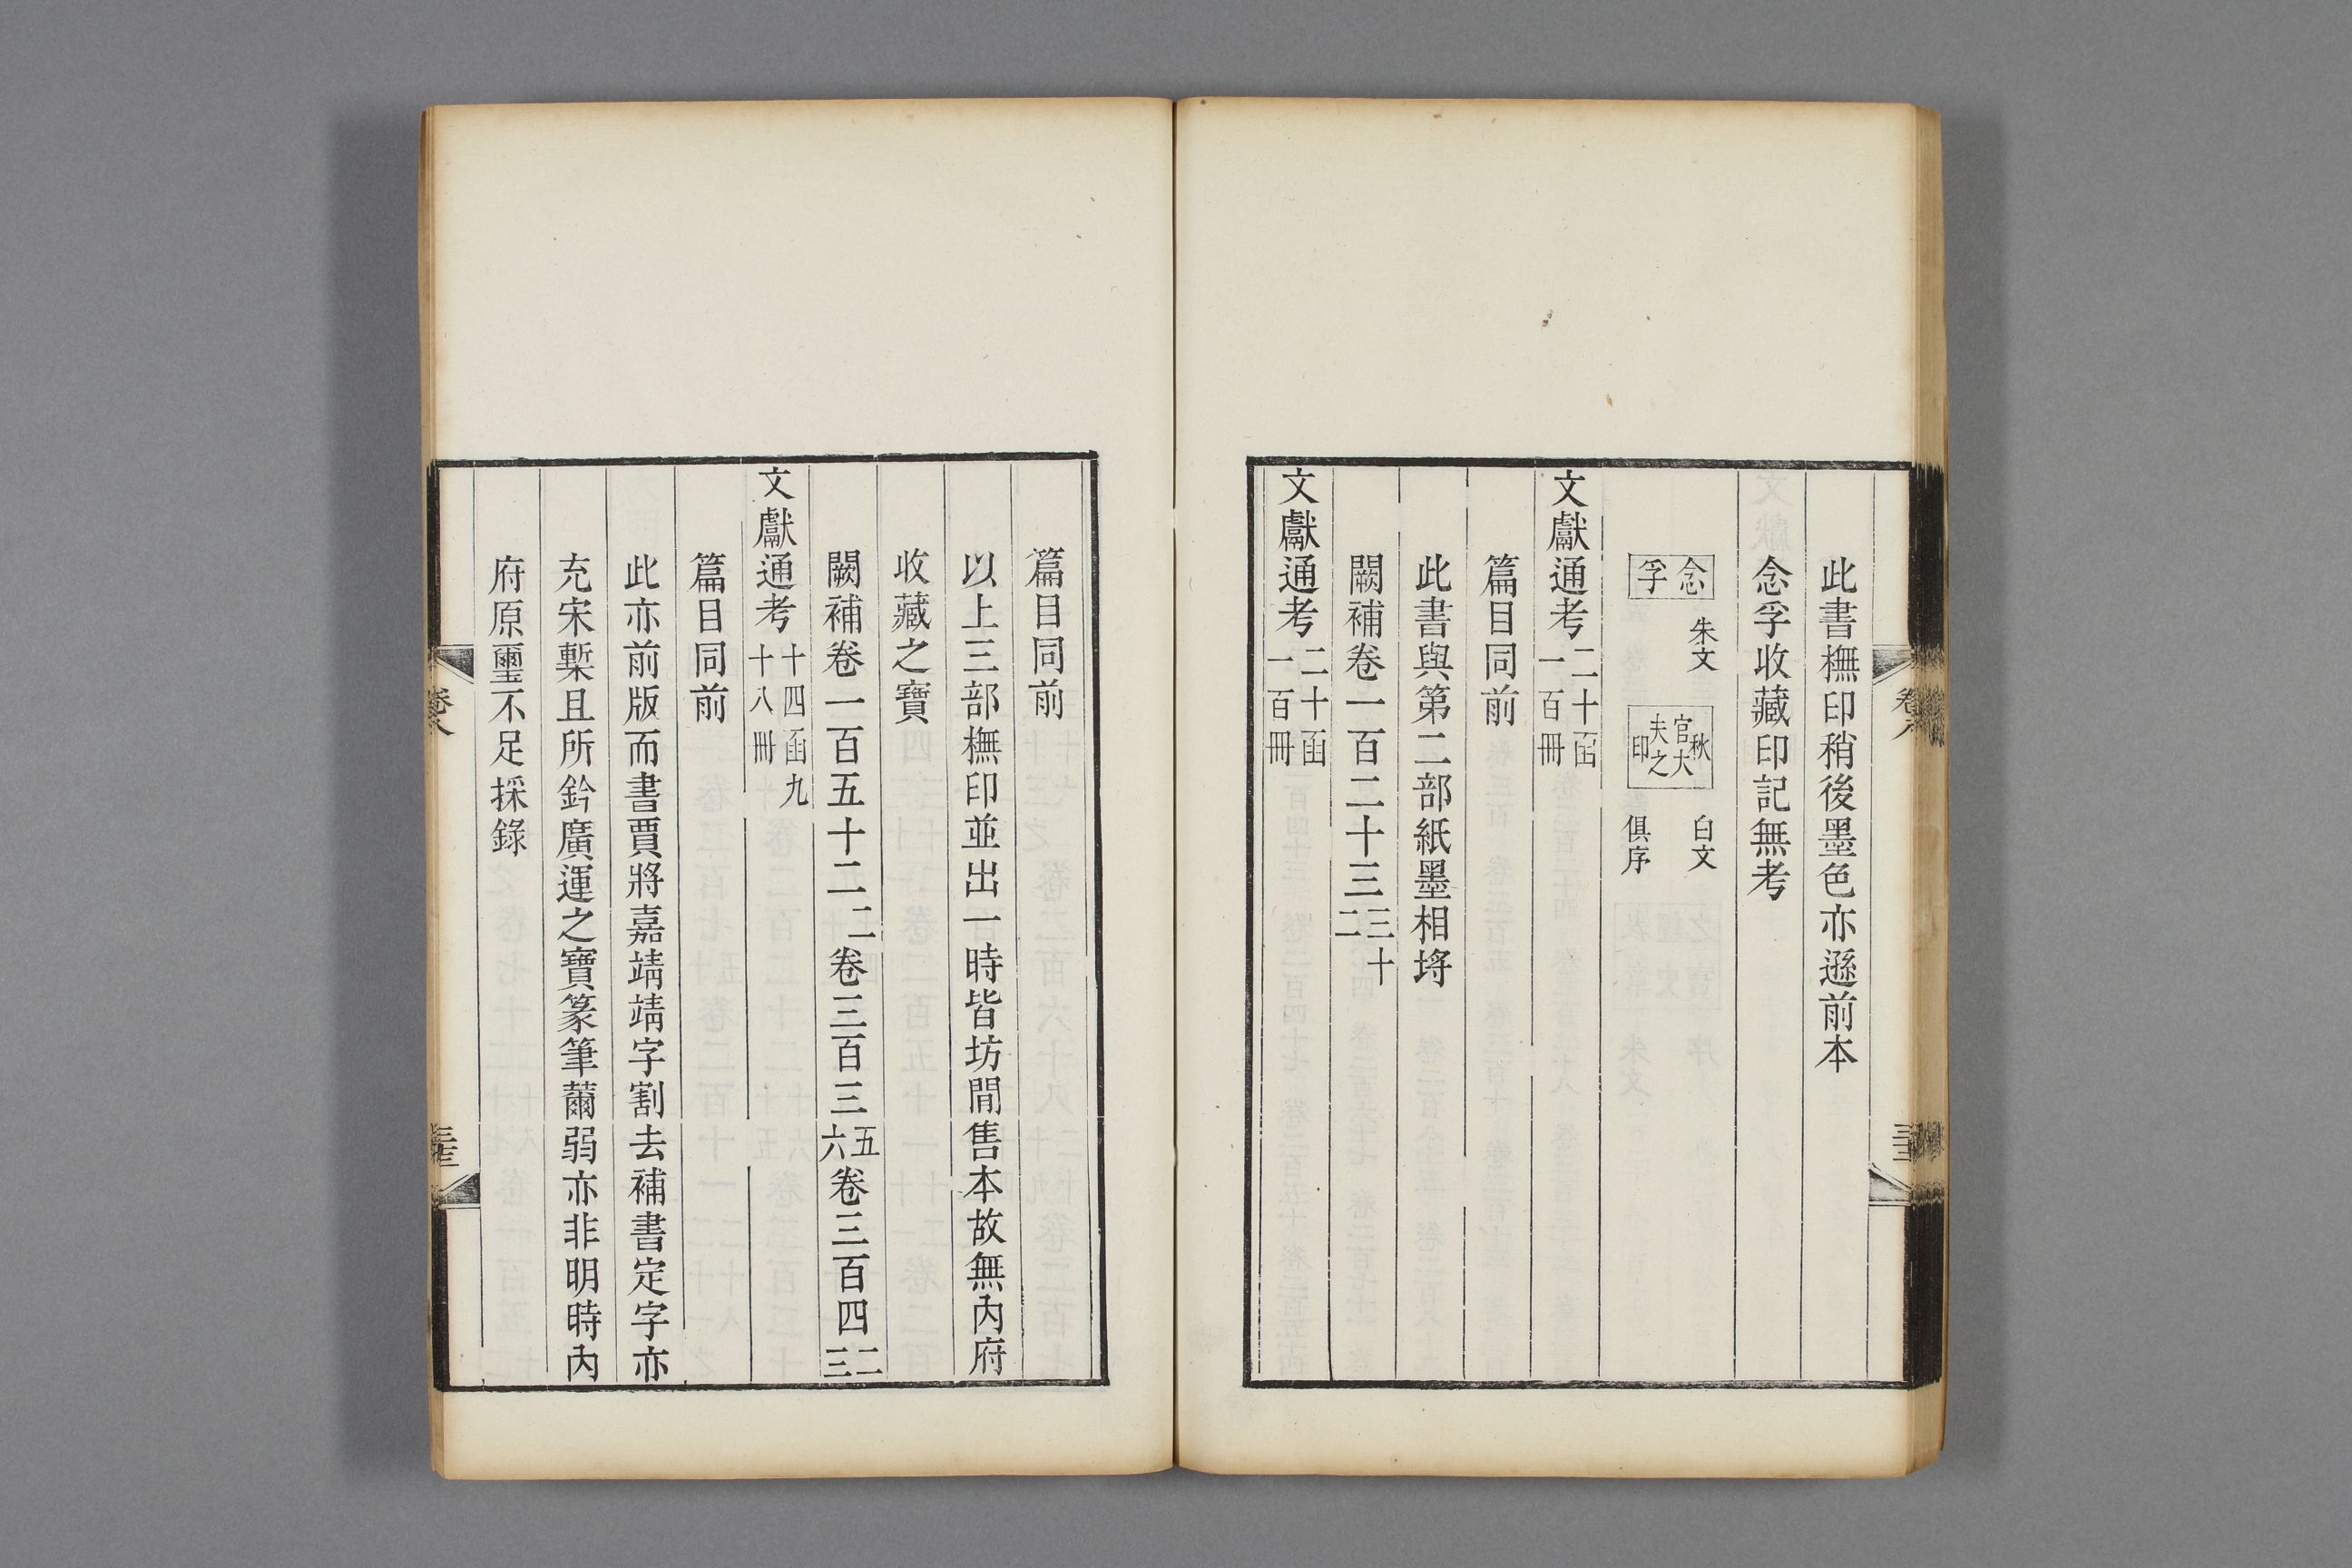 此書橅印稍後墨色亦遜前本
念孚收藏印記無考
念孚 朱文 秋官大夫之印 白文 俱序
文獻通考 二十函一百冊
篇目同前
此書與第二部紙墨相埒
闕補卷一百二十三 三十二
文獻通考 二十函一百冊
卷八
篇目同前
以上三部橅印並出一時皆坊閒售本故無內府
收藏之寶
闕補卷一百五十二 二 卷三百三 五六 卷三百四 二三
文獻通考 十四函九十八冊
篇目同前
此亦前版而書賈將嘉靖靖字割去補書定字亦
充宋槧且所鈐廣運之寶篆筆薾弱亦非明時內
府原璽不足採錄
卷八